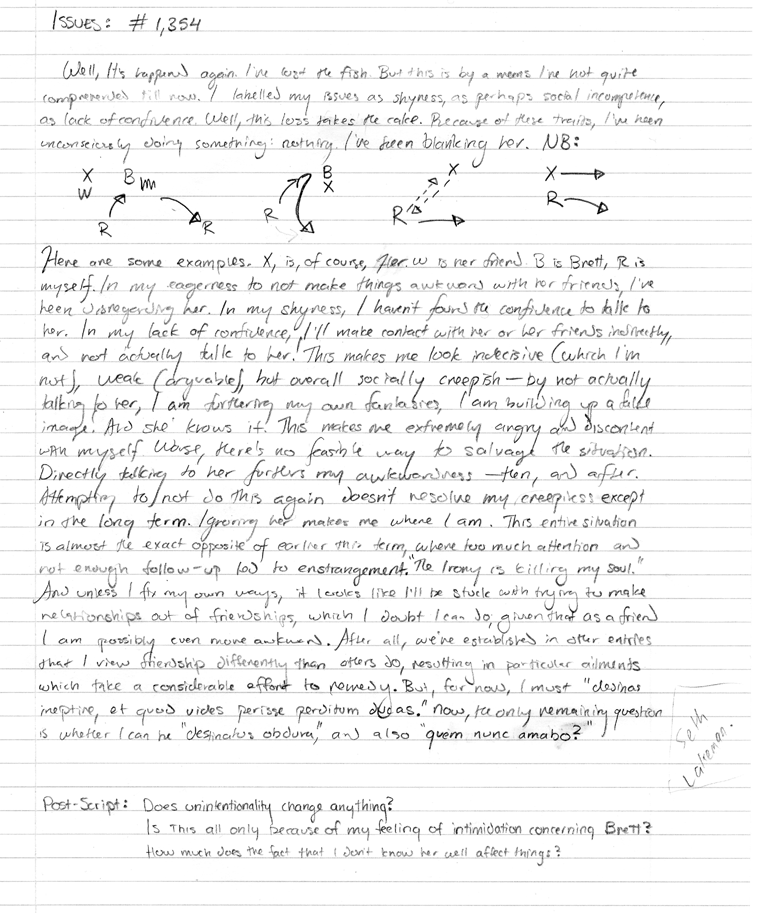 Issues: # 1,354
Well, It's happened again. I've lost the fish. But this is by a means I've not quite
comprehended till now. I labelled my issues as shyness, as perhaps social incompetence,
as lack of confidence. Well, this loss takes the cake. Because of these traits, I've been
unconsciously doing something: nothing. I've been blanking her. NB:
X B B X X
W X
R R R R R
Here are some examples. X, is, of course, Her. W is her friend. B is Brett, R is
myself. In my eagerness to not make things awkward with her friends, I've
been disregarding her. In my shyness, I haven't found the confidence to talk to
her. In my lack of confidence, I'll make contact with her or her friends indirectly,
and not actually talk to her! This makes me look indecisive (which I'm
not), weak (arguable), but overall socially creepish – by not actually
talking to her, I am furthering my own fantasies, I am building up a false
image. And she knows it. This makes me extremely angry and discontent
with myself. Worse, there's no feasible way to salvage the situation.
Directly talking to her furthers my awkwardness – then, and after.
Attempting to/not do this again doesn't resolve my creepiless except
in the long term. Ignoring her makes me where I am. This entire situation
is almost the exact opposite of earlier this term, where too much attention and
not enough follow-up led to enstrangement. "The Irony is killing my soul."
And unless I fix my own ways, it looks like I'll be stuck with trying to make
relationships out of friendships, which I doubt I can do, given that as a friend
I am possibly even more awkward. After all, we've established in other entries
that I view friendship differently than others do, resulting in particular ailments
which take a considerable effort to remedy. But, for now, I must "desinas
ineptire, et quod vides perisse perditum ducas." Now, the only remaining question
is whether I can be "destinatus obdura," and also "quem nunc amabo?"
Seth
Lakeman.
Post-Script: Does unintentionality change anything?
Is This all only because of my feeling of intimidation concerning Brett?
How much does the fact that I don't know her well affect things?